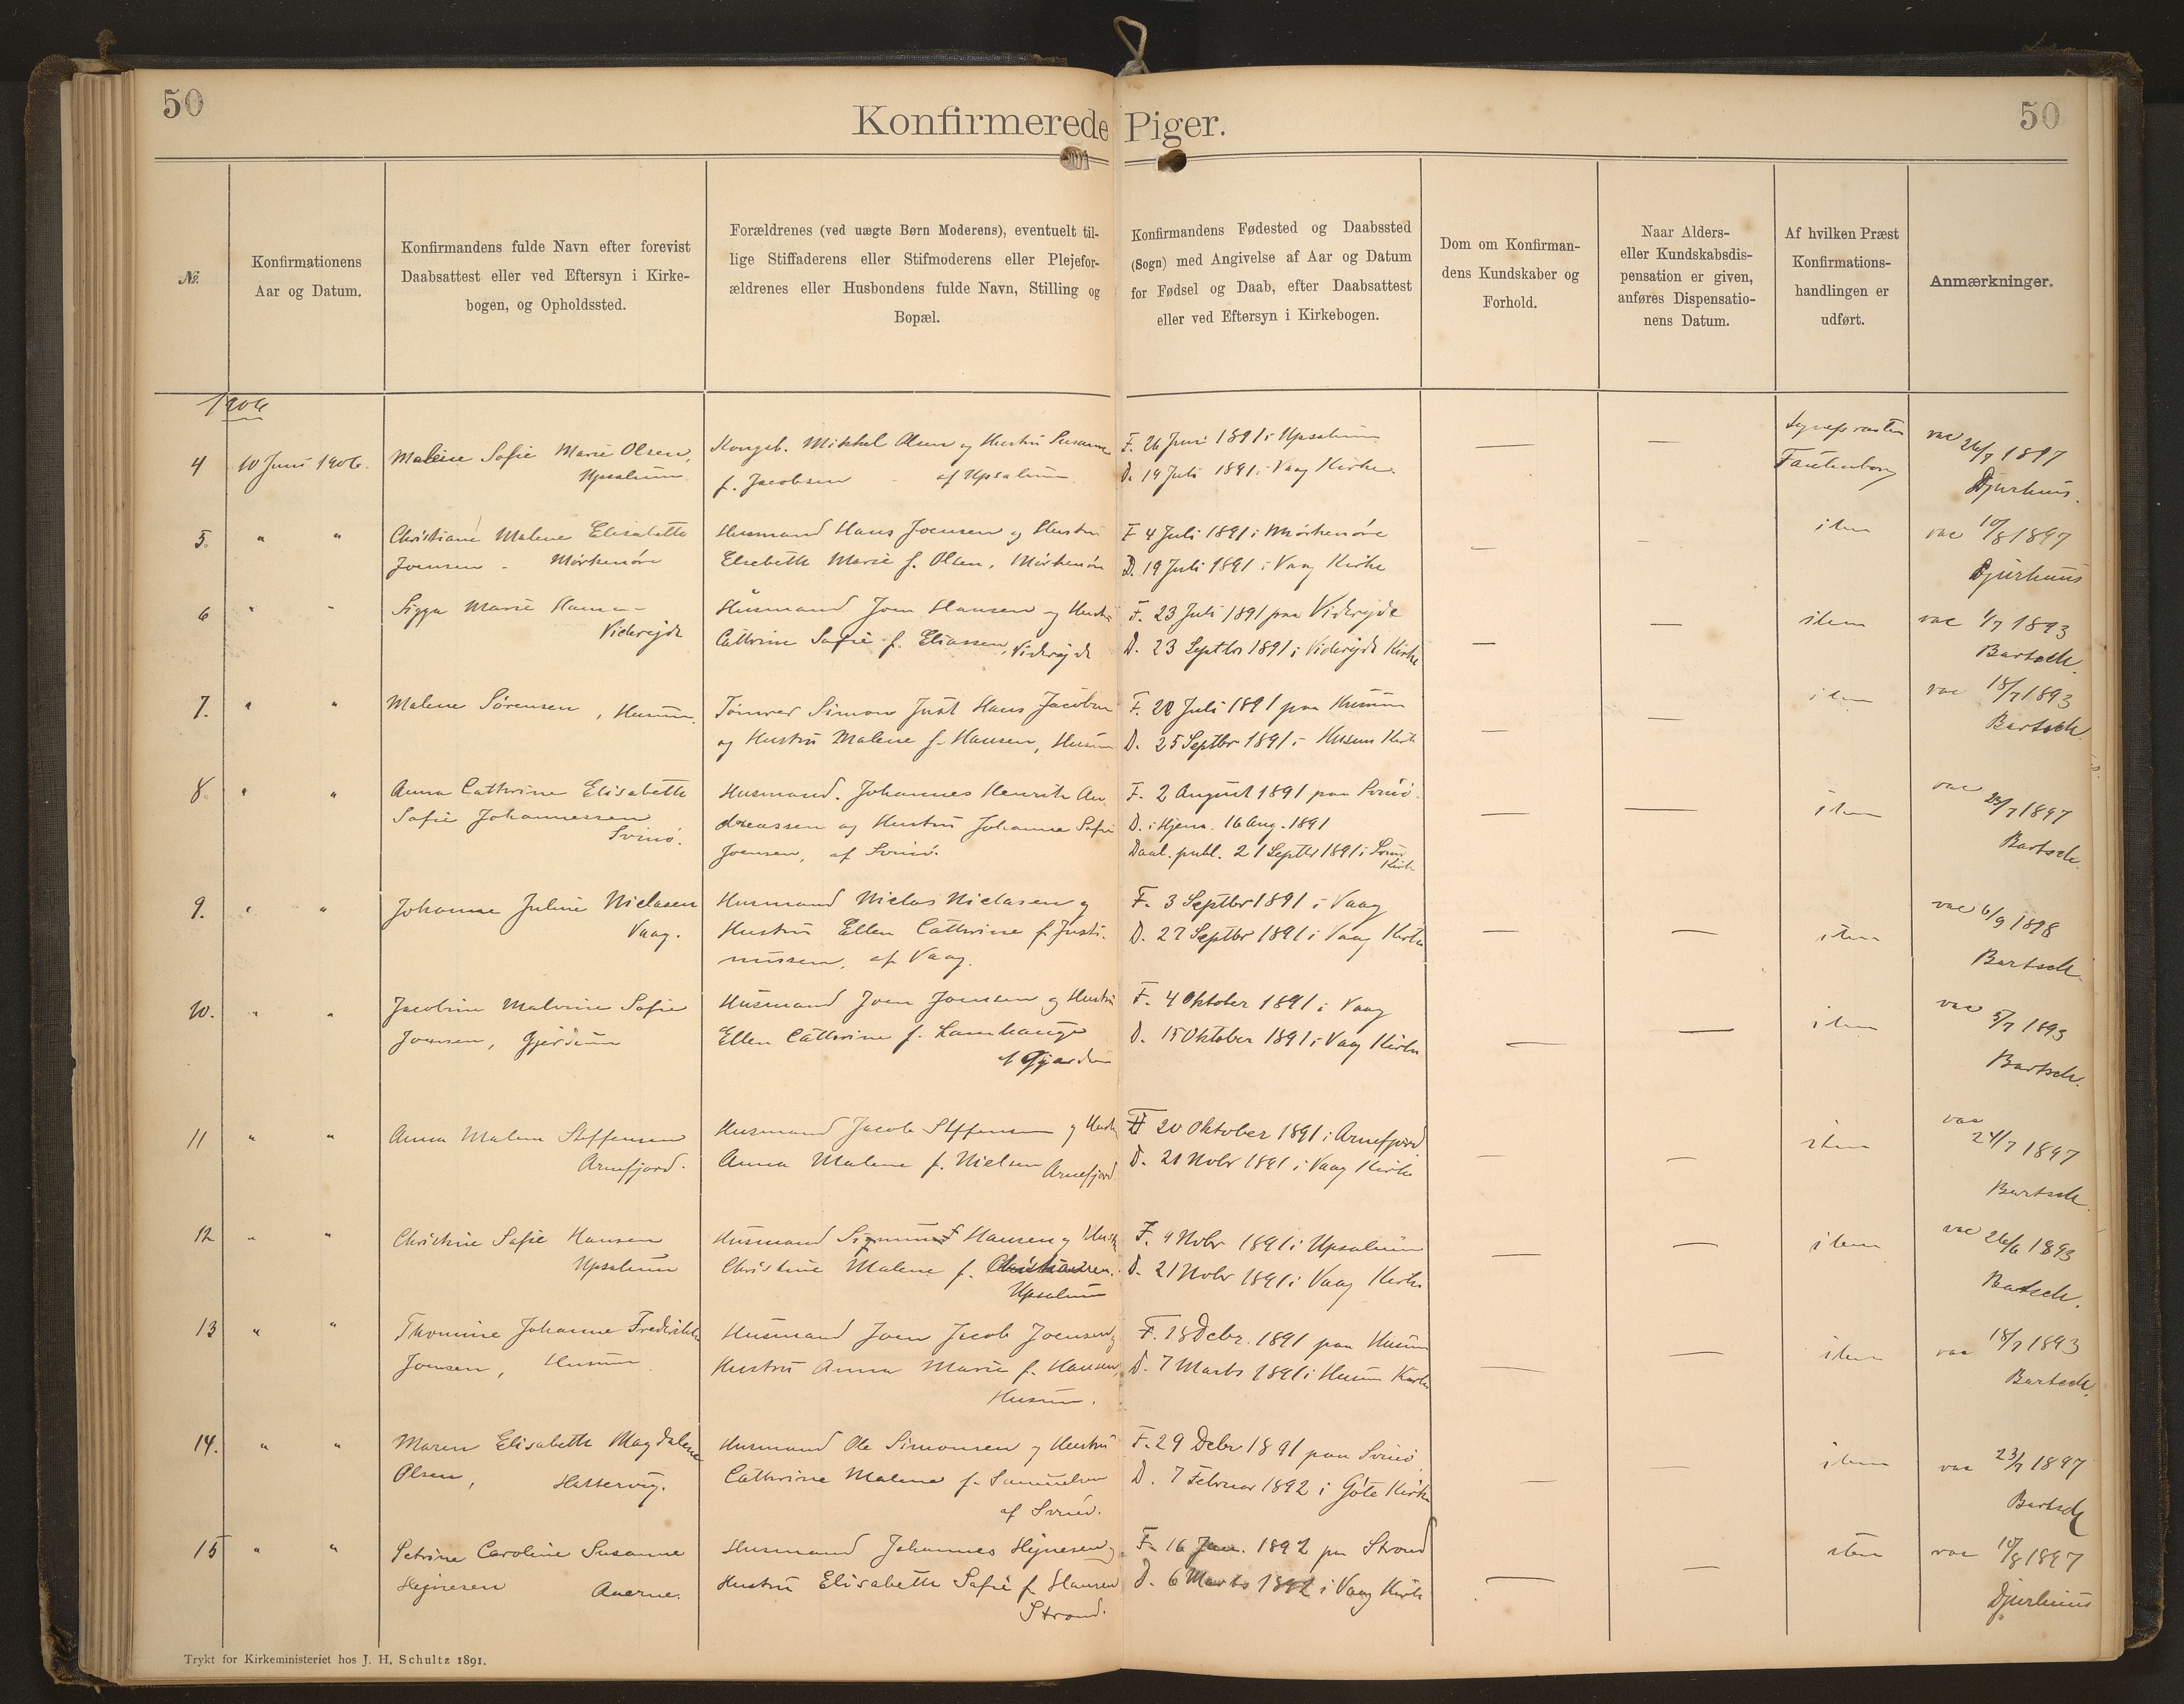 50
50
Konfirmerede Piger.
№.
Konfirmationens
Aar og Datum.
Konfirmandens fulde Navn efter forevist
Daabsattest eller ved Eftersyn i Kirke-
bogen, og Opholdssted.
Forældrenes (ved uægte Børn Moderens), eventuelt til-
lige Stiffaderens eller Stifmoderens eller Plejefor-
ældrenes eller Husbondens fulde Navn, Stilling og
Bopæl.
Konfirmandens Fødested og Daabssted
(Sogn) med Angivelse af Aar og Datum
for Fødsel og Daab, efter Daabsattest
eller ved Eftersyn i Kirkebogen.
Dom om Konfirman-
dens Kundskaber og
Forhold.
Naar Alders-
eller Kundskabsdis-
pensation er given,
anføres Dispensatio-
nens Datum.
Af hvilken Præst
Konfirmations-
handlingen er
udført.
Anmærkninger.
1906
4
10 Juni 1906.
Malene Sofie Marie Olsen,
Upsalum
Kongsb. Mikkel Olsen og Hustru Susanne
f. Jacobsen - af Upsalum
F. 26 Juni 1891 i Upsalum
D. 19 Juli 1891 i Vaag Kirke.
—
—
vac 26/7 1897
Djurhuus.
5.
" "
Christiane Malene Elisabeth
Joensen - Mørkenøre
Husmand Hans Joensen og Hustru
Elsebeth Marie f. Olsen, Mørkenøre
F 4 Juli 1891 i Mørkenøre
D. 19 Juli 1891 i Vaag Kirke
—
—
item
vac 10/8 1897
Djurhuus
6
" "
Sigga Marie Hansen
Viderejde
Husmand Joen Hansen og Hustru
Cathrine Sofie f. Eliassen, Viderejde
F. 23 Juli 1891 paa Viderejde
D. 23 Septbr 1891 i Viderejde Kirke
—
—
item
vac 1/7 1893
Bartsch.
7.
" "
Malene Sørensen, Husum.
Tømrer Simon Just Hans Jacobsen
og Hustru Malene f. Hansen, Husum
F. 28 Juli 1891 paa Husum
D. 25 Septbr 1891 i Husum Kirke
—
—
item
vac 18/7 1893
Bartsch.
8
" "
Anna Cathrine Elisabeth
Sofie Johannessen
Svinø.
Husmand. Johannes Henrik An-
dreassen og Hustru Johanne Sofie
Joensen, af Svinø.
F. 2 August 1891 paa Svinø.
D. i Hjem. 16 Aug. 1891
Daab. publ. 21 Septbr 1891 i Svinø
Kirke
—
—
item
vac 23/7 1897
Bartsch.
9.
" "
Johanne Juline Niclasen
Vaag.
Husmand Niclas Niclasen og
Hustru Ellen Cathrine f. Justi-
nussen, af Vaag.
F. 3 Septbr 1891 i Vaag
D. 27 Septbr 1891 i Vaag Kirke
—
—
item
vac 6/9 1898
Bartsch
10.
" "
Jacobine Malvine Sofie
Joensen, Gjerdum
Husmand Joen Joensen og Hustru
Ellen Cathrine f. Lamhauge
af Gjerdum
F. 4 Oktober 1891 i Vaag
D. 15 Oktober 1891 i Vaag Kirke
—
—
item
vac 5/7 1893
Bartsch.
11
" "
Anna Malene Steffensen
Arnefjord.
Husmand Jacob Steffensen og Hustru
Anna Malene f. Nielsen Arnefjord
F 20 Oktober 1891 i Arnefjord
D. 21 Nobr 1891 i Vaag Kirke
—
—
item
vac 24/7 1897
Bartsch.
12
" "
Christine Sofie Hansen
Upsalum
Husmand Sigmund Hansen og Hustru
Christine Malene f. Christiansen.
Upsalum
F. 4 Nobr 1891 i Upsalum
D. 21 Nobr 1891 i Vaag Kirke
—
—
item
vac 26/6 1893
Bartsch.
13
" "
Thomine Johanne Frederikke
Joensen, Husum
Husmand Joen Jacob Joensen og
Hustru Anna Marie f. Hansen,
Husum.
F. 18 Debr. 1891 paa Husum
D. 7 Marts 1891 i Husum Kirke
—
—
item
vac 18/7 1893
Bartsch.
14.
" "
Maren Elisabeth Magdalene
Olsen, Hattervig.
Husmand Ole Simonsen og Hustru
Cathrine Malene f. Samuelsen
af Svinø.
F. 29 Debr 1891 paa Svinø
D. 7 Februar 1892 i Gøte Kirke
—
—
item
vac 23/7 1897
Bartsch
15
" "
Petrine Caroline Susanne
Hejnesen Anerne.
Husmand Johannes Hejnesen og
Hustru Elisabeth Sofie f. Hansen
Strand.
F. 16 Jan. 1892 paa Strand
D. 6 Marts 1892 i Vaag Kirke
—
—
item
vac 10/8 1897
Djurhuus
Trykt for Kirkeministeriet hos J. H. Schultz 1891.